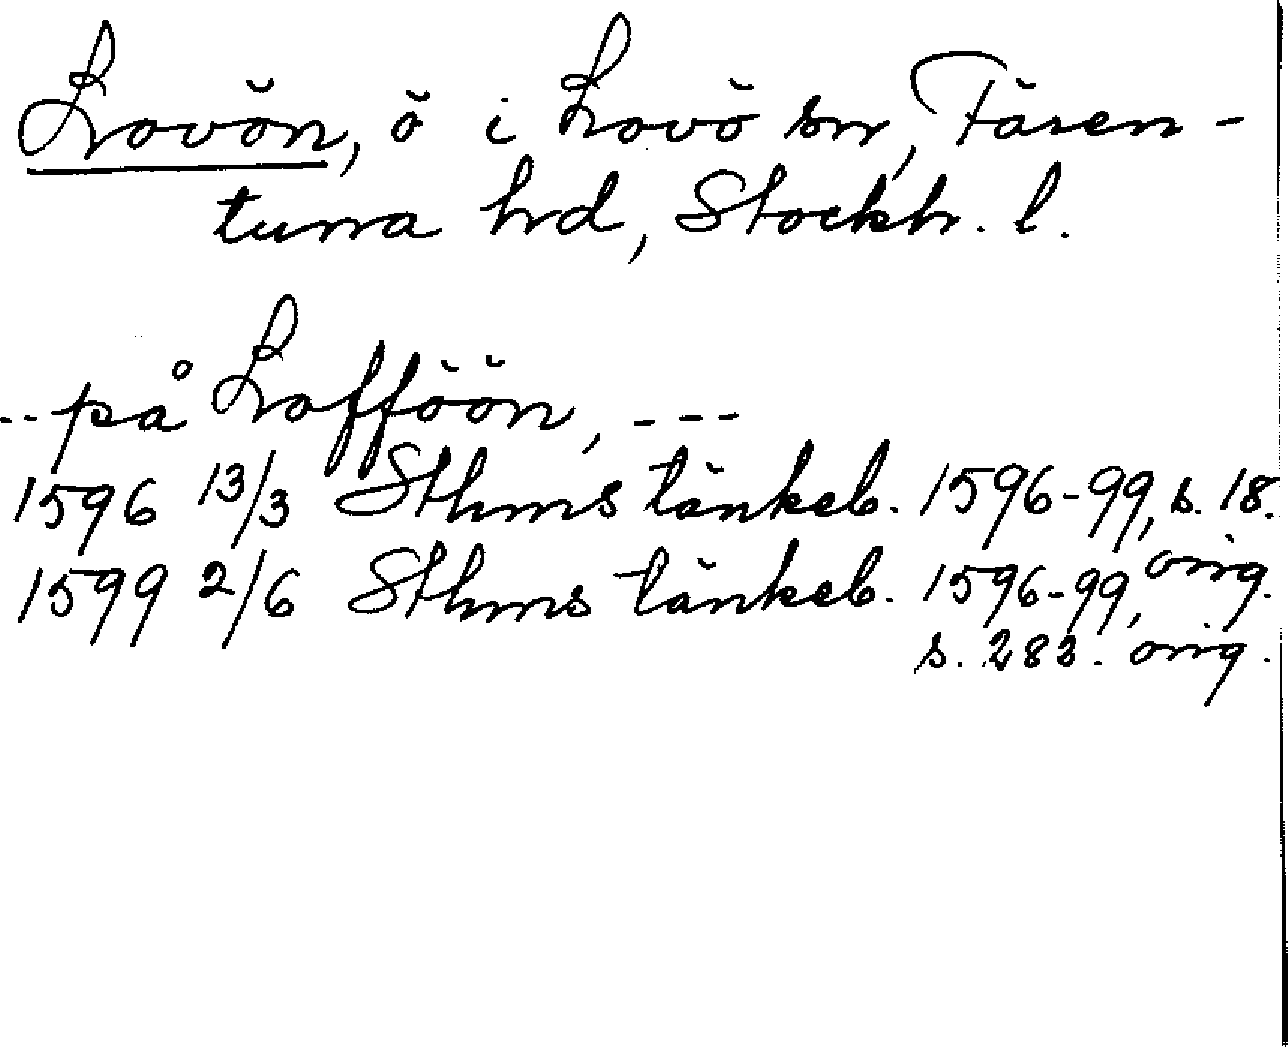 Lovön, ö i Lovö sn, Fären-
tuna hd, Stockh. l.
-- på Lofföön, ---
1596 13/3 Sthms tänkeb. 1596-99, s. 18.
orig.
1599 2/6 Sthms tänkeb. 1596-99,
s. 283. orig.